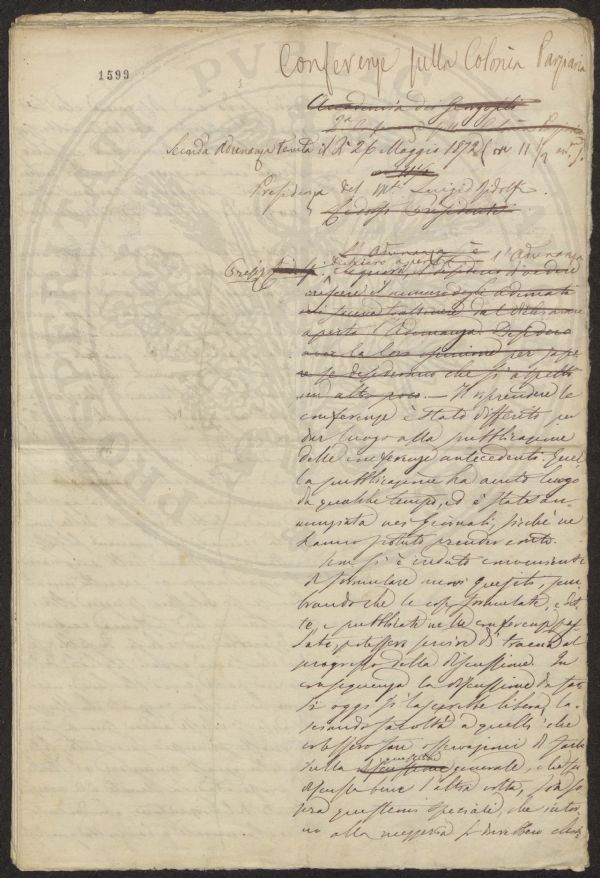 1599
Conferenze sulla Colonia Parziaria
Accademia dei Georgofili
Seconda Adunanza tenuta il dì 26 Maggio 1872 (ore 11 1/2 an.)
Presidenza del M.se Luigi Ridolfi
Ridolfi Presidente
L'Adunanza è
Dichiaro aperta l'Adunanza
crescere il numero degli adunati
aperta l'Adunanza. Desidero
avere la loro opinione per sape
re se desiderano che si aspetti
un altro poco. — Il riprendere le
conferenze è stato differito per
dar luogo alla pubblicazione
delle conferenze antecedenti. Quel
la pubblicazione ha avuto luogo
da qualche tempo, ed è stata an
nunziata nei giornali, sicchè ne
hanno potuto prender conto.
Non si è creduto conveniente
di formulare nuovi quesiti, sem
brando che le cose formulate, e det
te, e pubblicate nelle conferenze pas
sate potessero servire di traccia al
progresso della discussione. In
conseguenza la discussione da far
si oggi si lascerebbe libera, la
sciando facoltà a quelli che
volessero fare osservazioni di farle
sulla questione generale, che fu
discussa bene l'altra volta, sia so
pra questioni speciali, che intor
no alla mezzeria si